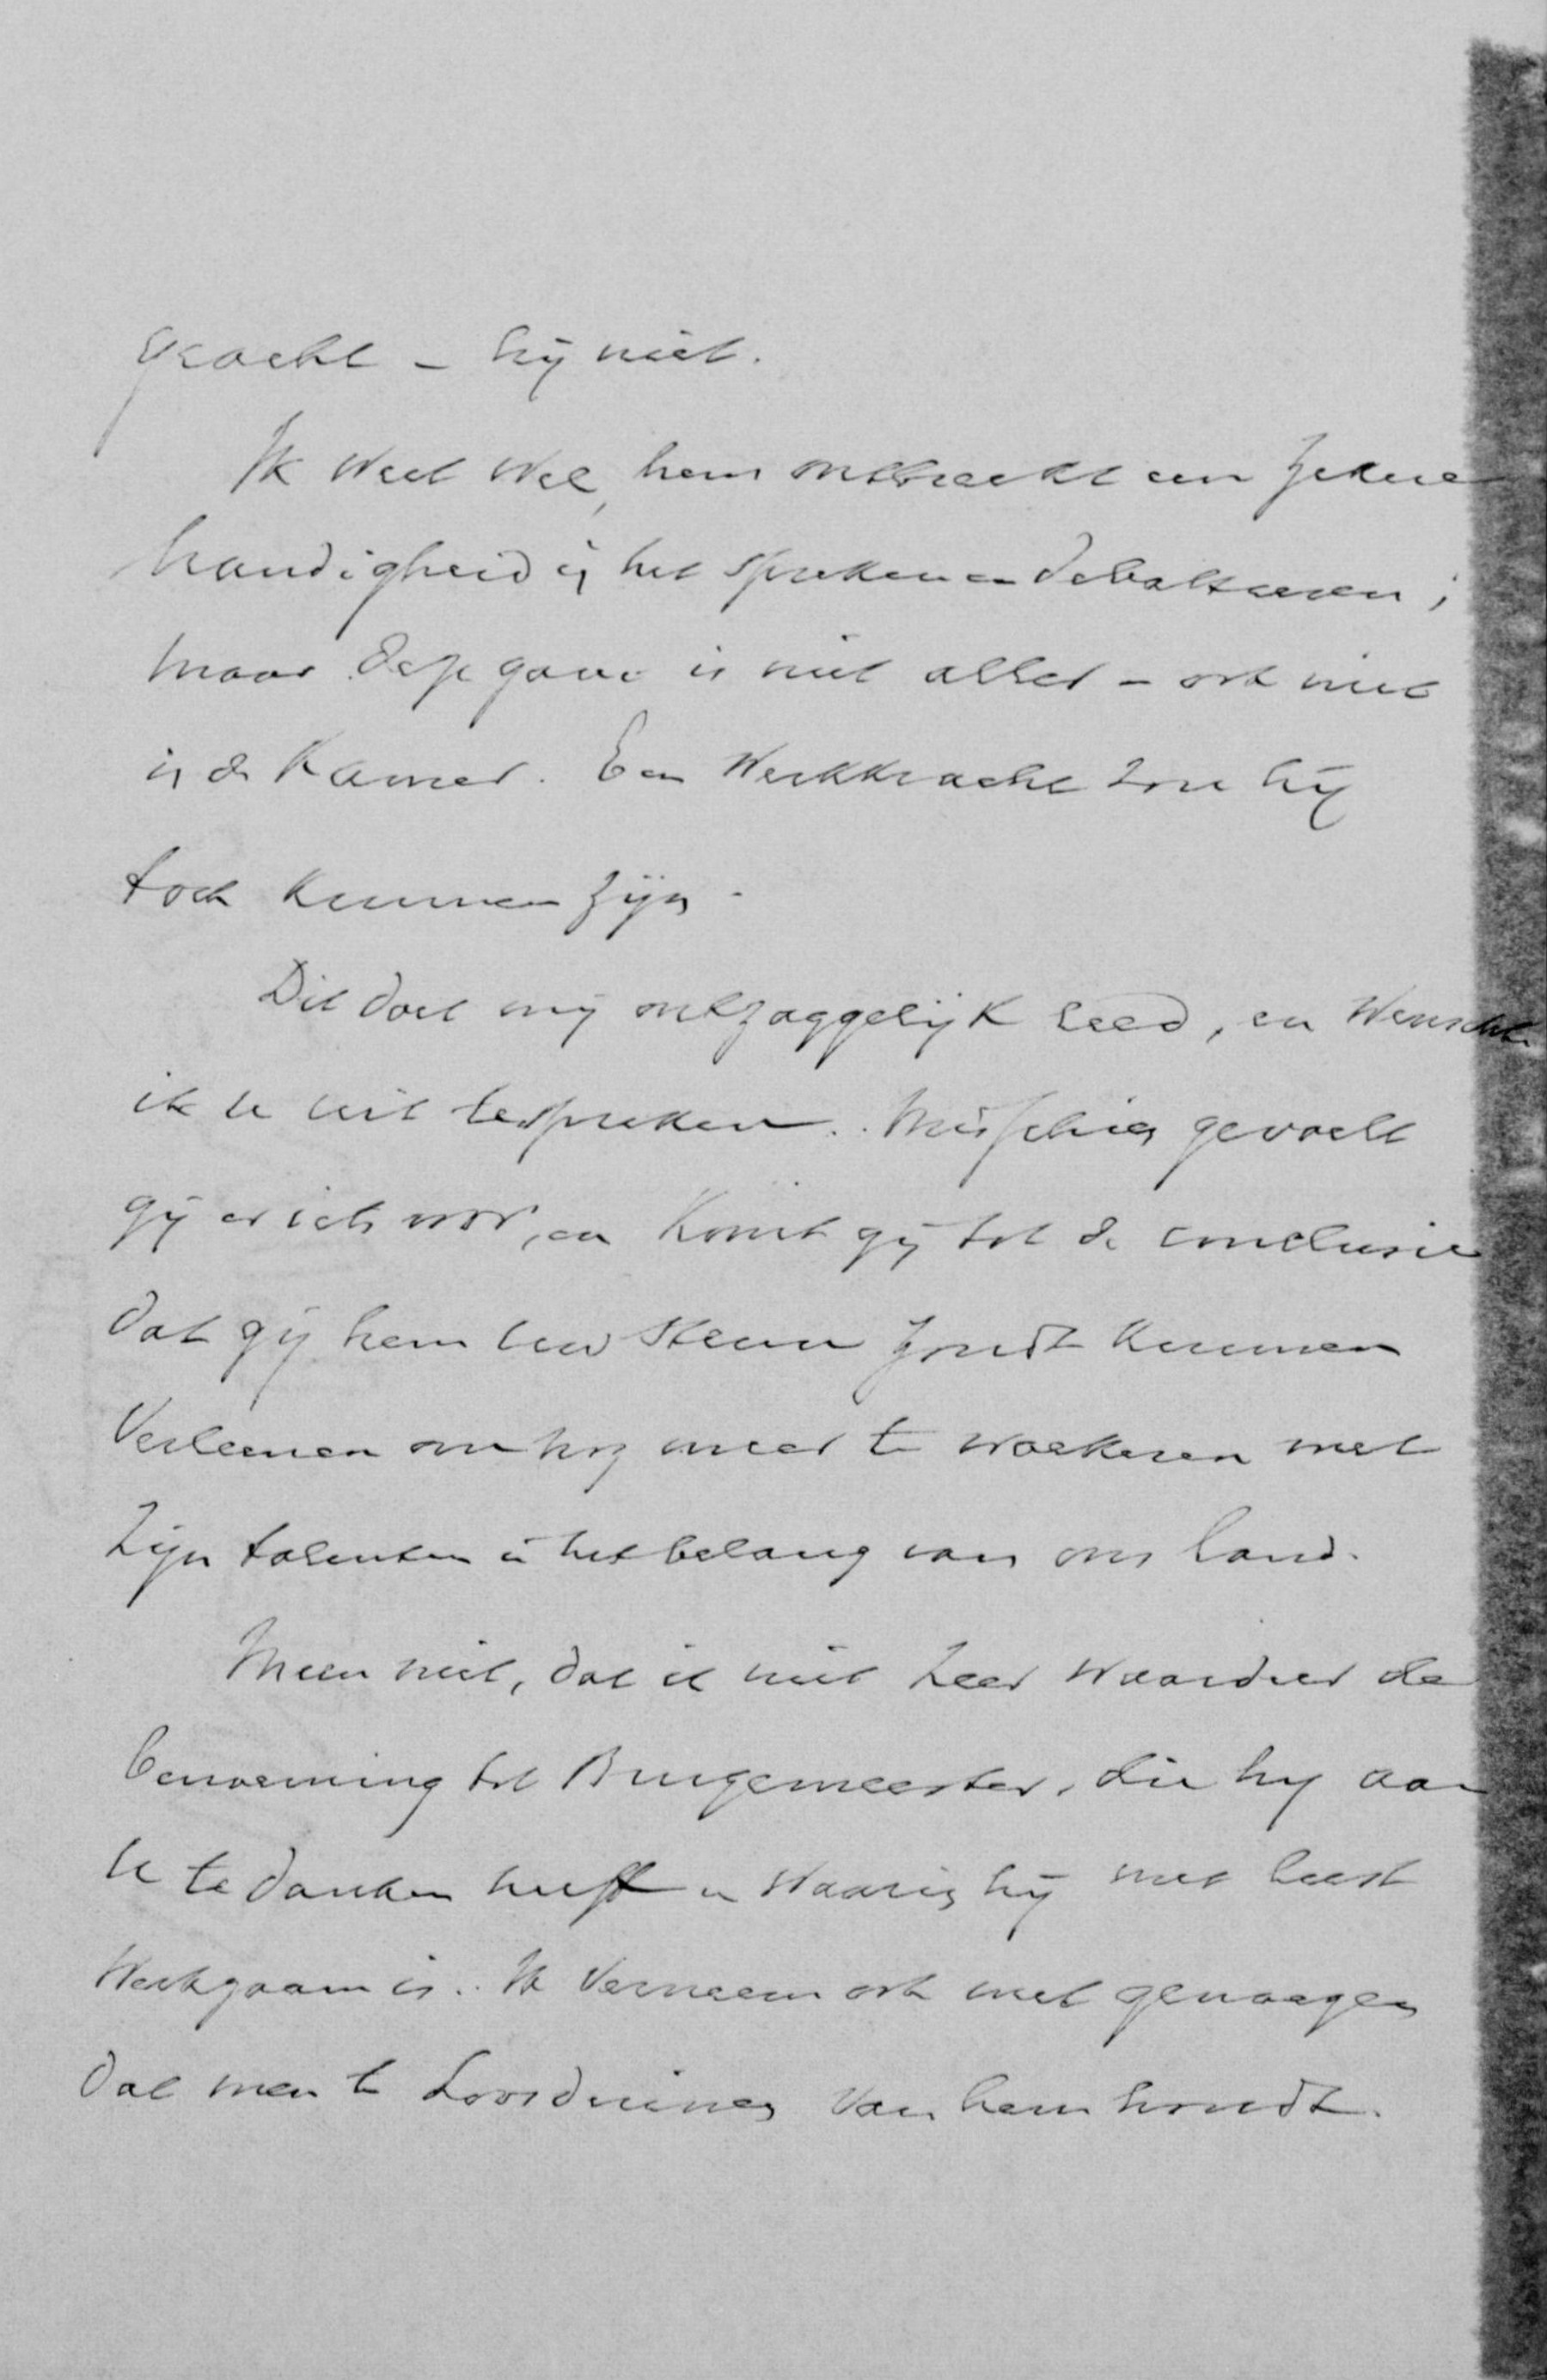 gezocht – hij niet.
Ik weet wel, hem ontbreekt een zekere
handigheid in het spreken en debatteeren;
maar deze gave is niet alles – ook niet
in de Kamer. Een Werkkracht zou hij
toch kunnen zijn.
Dit doet mij ontzaggelijk leed, en wensch
ik U uit te spreken. Misschien gevoelt
gij er iets voor, en komt gij tot de conclusie
dat gij hem uw steun zoudt kunnen
verleenen om nog meer te woekeren met
zijn talenten in het belang van ons land.
Meen niet, dat ik niet zeer waardeer de
benoeming tot Burgemeester, die hij aan
U te danken heeft en waarin hij met lust
werkzaam is. Ik verneem ook met genoegen
dat men te Loosduinen van hem houdt.